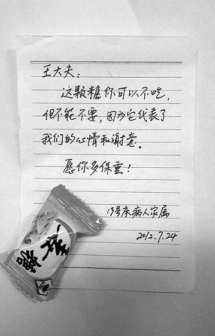 王大夫：
这颗糖你可以不吃，
但不能不要，因为它代表了
我们的心情和谢意。
愿你多保重！
13号床病人家属
2012.7.24